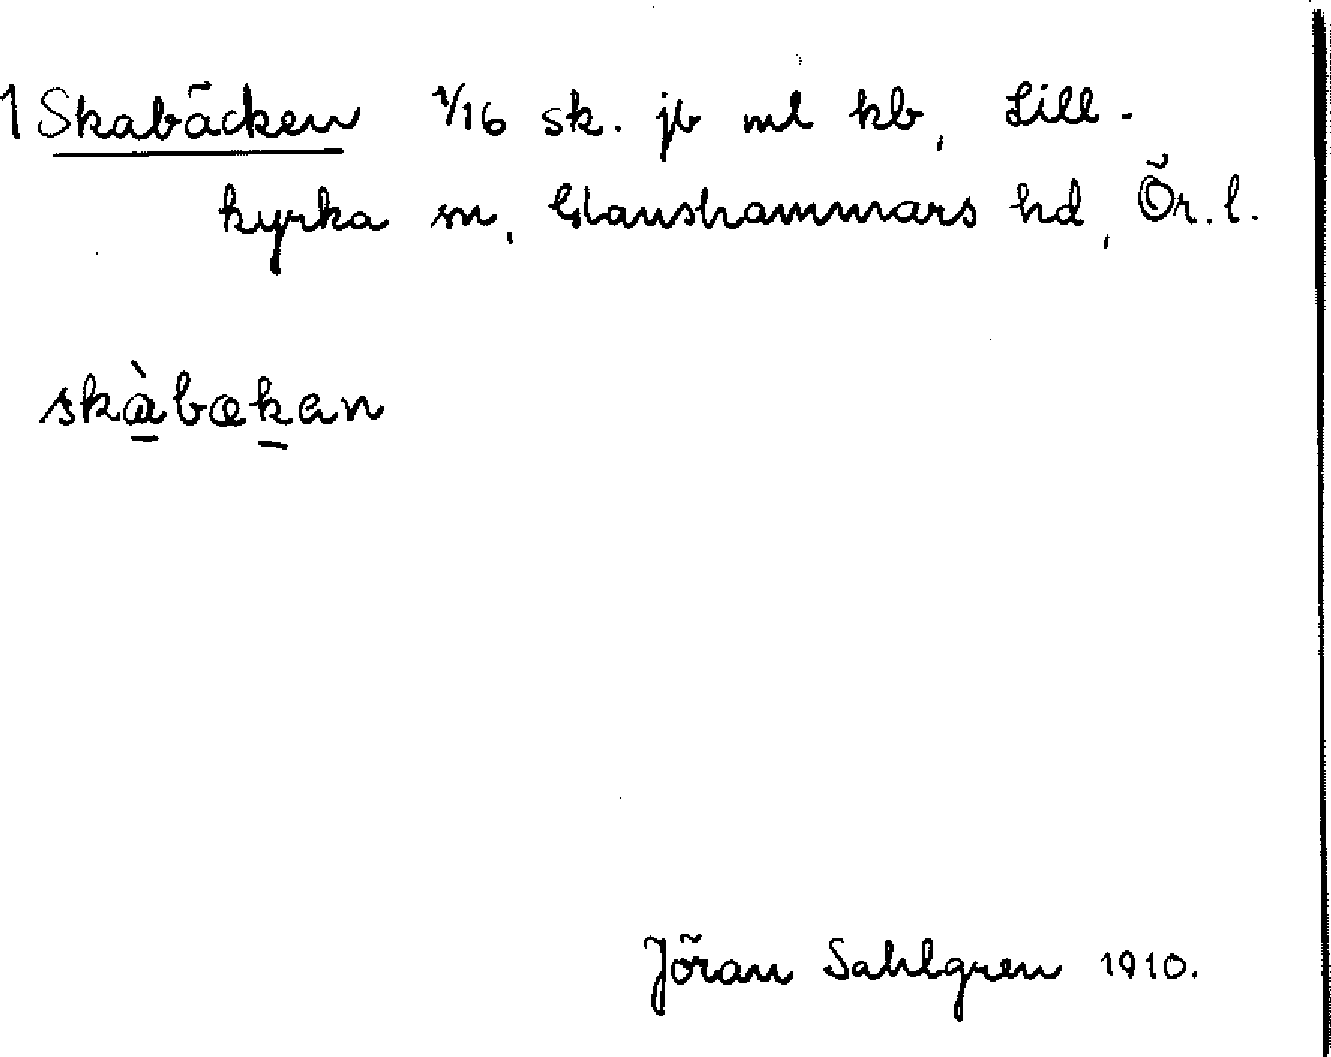 1 Skabäcken 1/16 sk. jb ml kb, Lill-
kyrka sn, Glanshammars hd, Ör. l.
skàbækan
Jöran Sahlgren 1910.